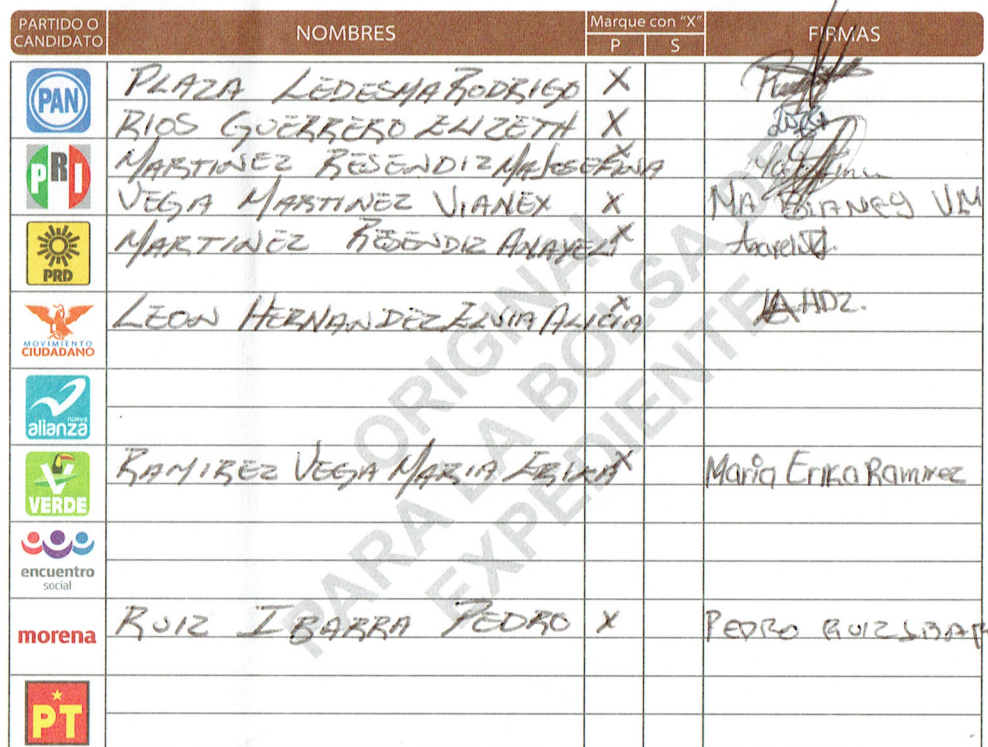 PARTIDO O CANDIDATO NOMBRES Marque con "X" P S FIRMAS
PAN PLAZA LEDESMA RODRIGO X
RIOS GUERRERO ELIZETH X
PRI MARTINEZ RESENDIZ MA JOSEFINA X
VEGA MARTINEZ VIANEX X MA BIANEY VM
PRD MARTINEZ RESENDIZ ANAYELI X
MOVIMIENTO CIUDADANO LEON HERNANDEZ ELVIA ALICIA X HDZ.
nueva alianza
VERDE RAMIREZ VEGA MARIA ERIKA X Maria Erika Ramirez
encuentro social
morena RUIZ IBARRA PEDRO X PEDRO RUIZ IBAR
PT
ORIGINAL
PARA LA BOLSA DE
EXPEDIENTE